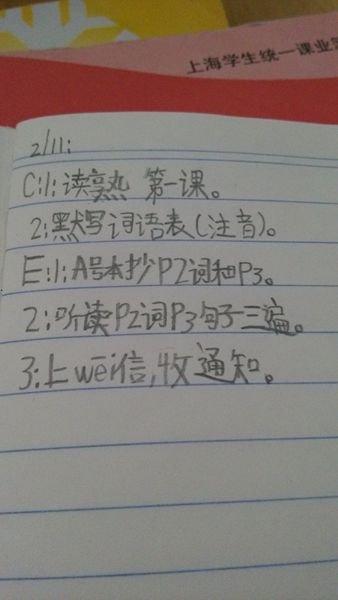 上海学生统一课业
2/11:
C:1:读熟 第一课。
2:默写词语表(注音)。
E:1:A号本抄P2词和P3。
2:听读P2词P3句子三遍。
3:上wēi信,收通知。